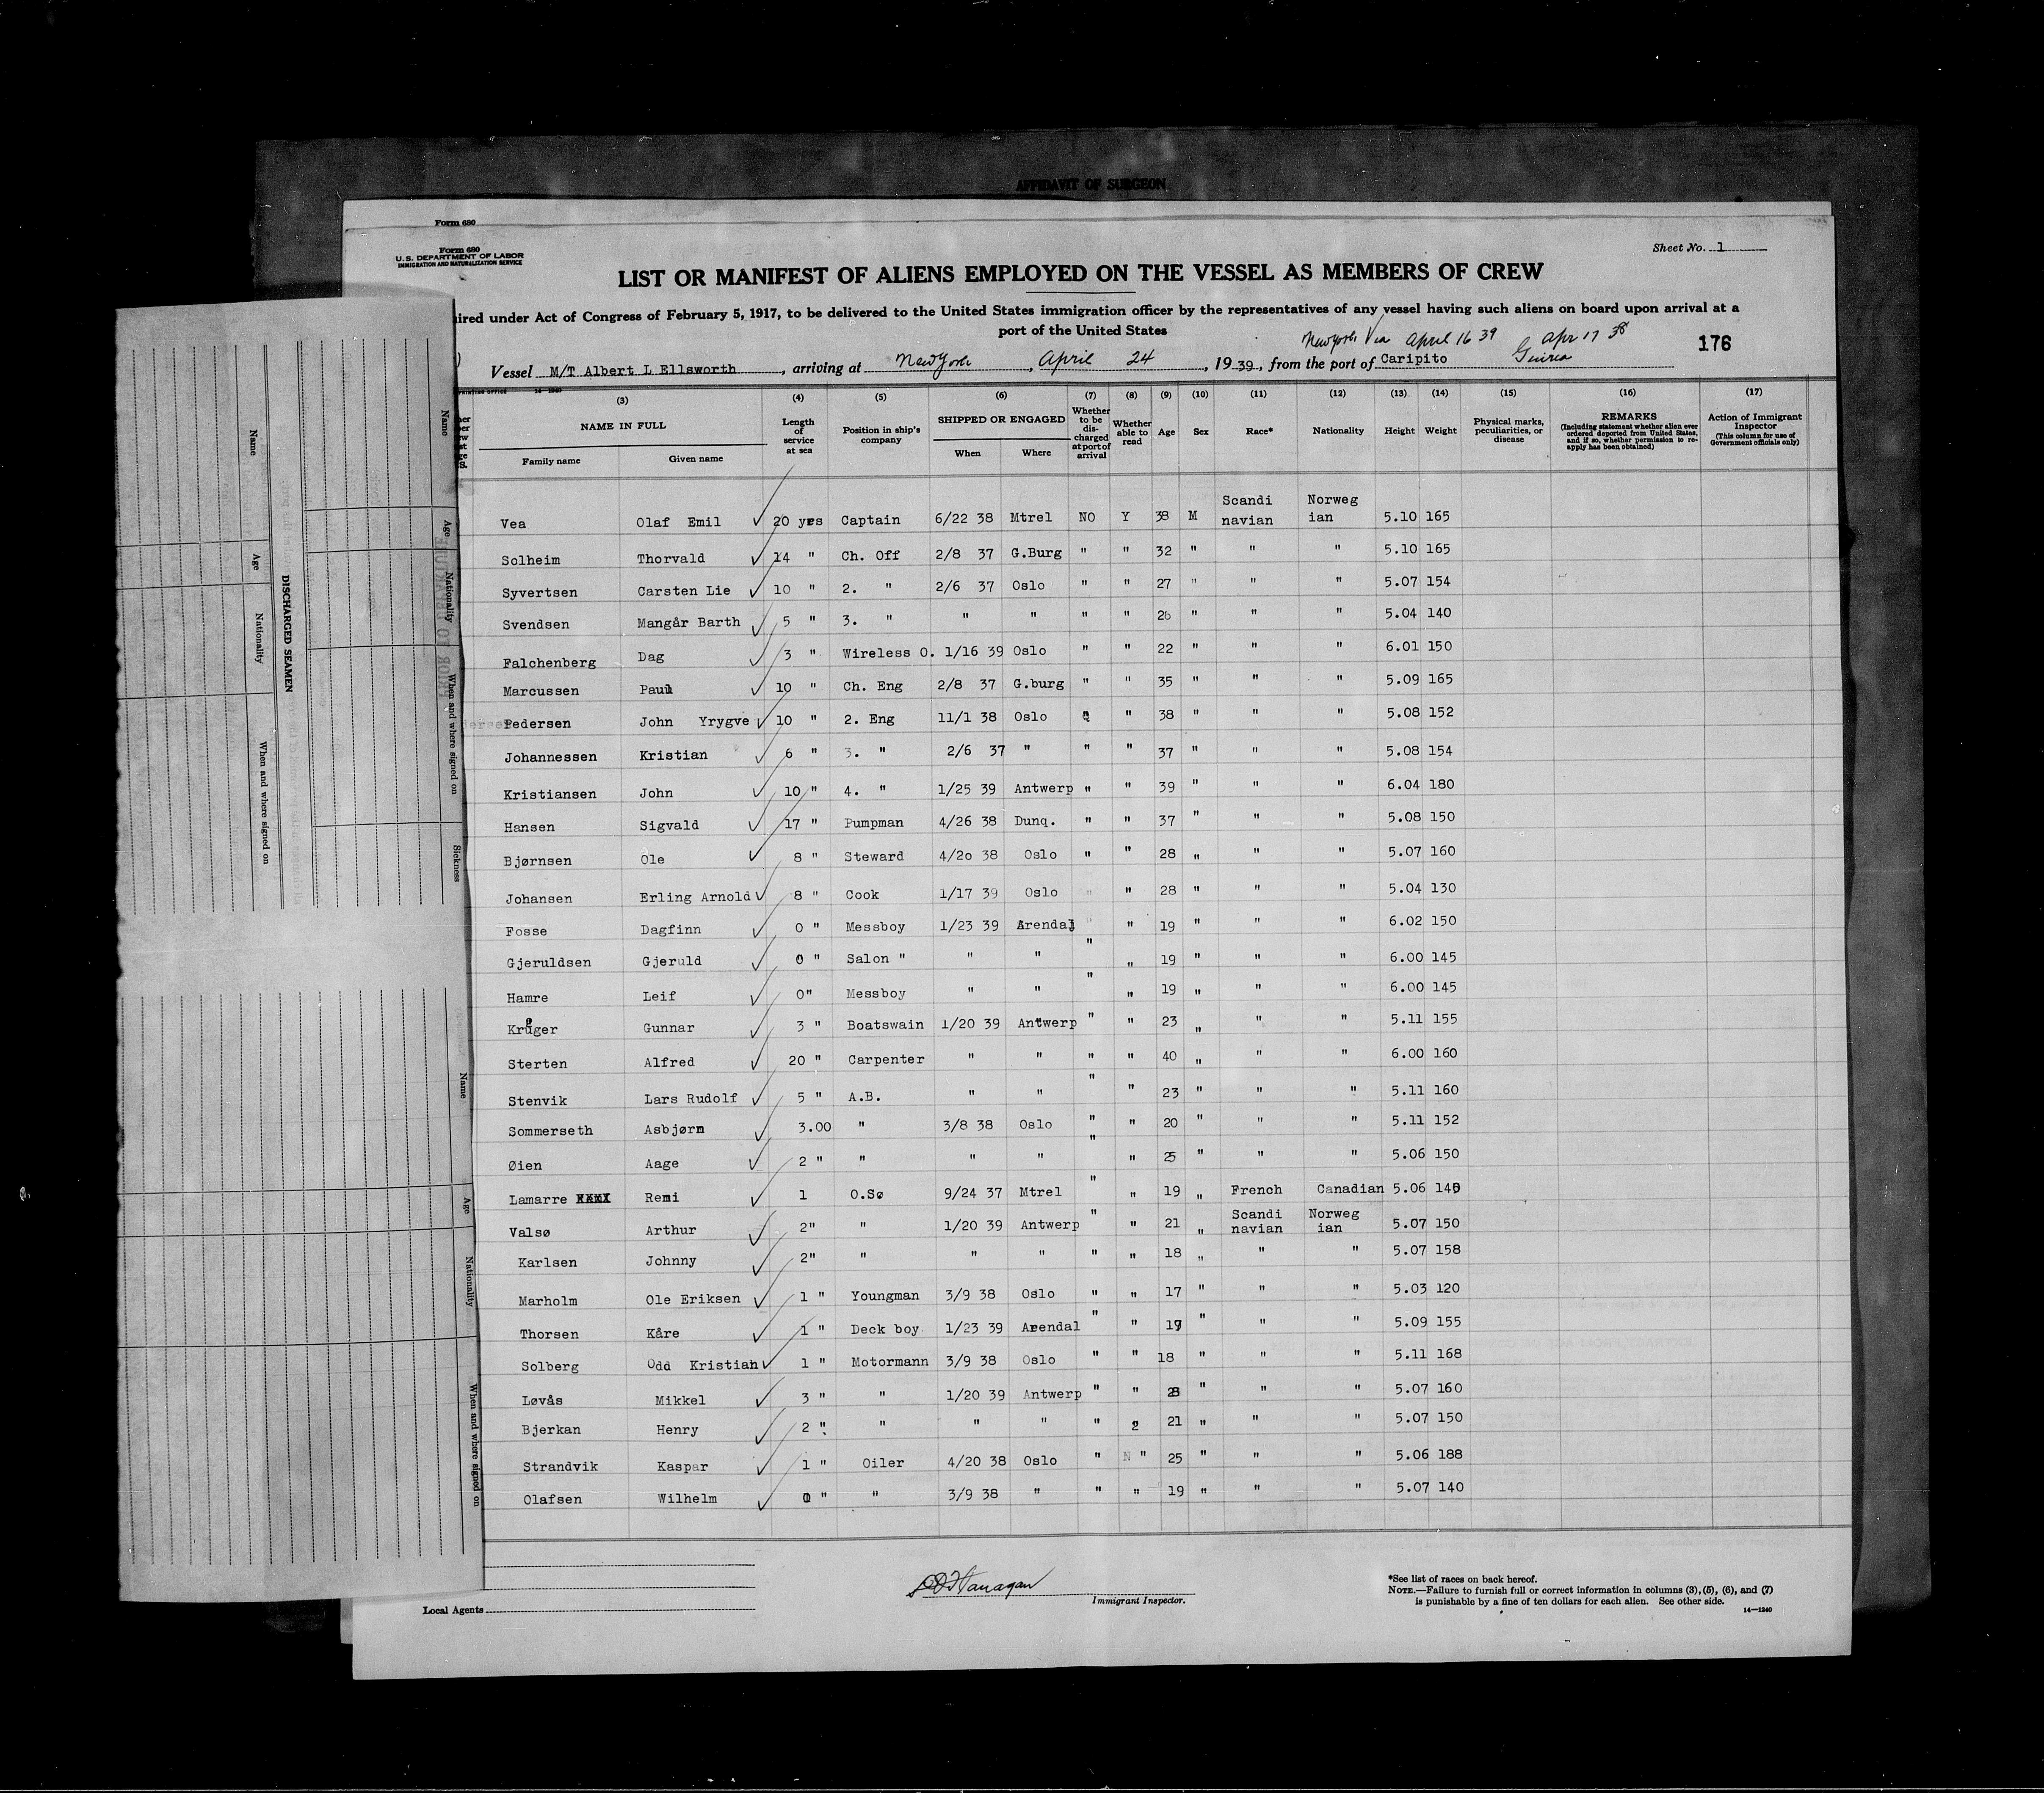 AFFIDAVIT OF SURGEON
Form 680
Form 680
U. S. DEPARTMENT OF LABOR
IMMIGRATION AND NATURALIZATION SERVICE
Sheet No. 1
LIST OR MANIFEST OF ALIENS EMPLOYED ON THE VESSEL AS MEMBERS OF CREW
ired under Act of Congress of February 5, 1917, to be delivered to the United States immigration officer by the representatives of any vessel having such aliens on board upon arrival at a
port of the United States
New York Via April 16 39 Apr 17 38
176
Vessel M/T Albert L Ellsworth, arriving at New York, April 24, 1939, from the port of Caripito Guiria
(3) (4) (5) (6) (7) (8) (9) (10) (11) (12) (13) (14) (15) (16) (17)
NAME IN FULL
Family name Given name
Length of service at sea
Position in ship's company
SHIPPED OR ENGAGED
When Where
Whether to be discharged at port of arrival
Whether able to read
Age
Sex
Race*
Nationality
Height
Weight
Physical marks, peculiarities, or disease
REMARKS
(Including statement whether alien ever ordered deported from United States, and if so, whether permission to reapply has been obtained)
Action of Immigrant Inspector
(This column for use of Government officials only)
Vea Olaf Emil 20 yrs Captain 6/22 38 Mtrel NO Y 38 M Scandi navian Norweg ian 5.10 165
Solheim Thorvald 14 " Ch. Off 2/8 37 G.Burg " " 32 " " " 5.10 165
Syvertsen Carsten Lie 10 " 2. " 2/6 37 Oslo " " 27 " " " 5.07 154
Svendsen Mangår Barth 5 " 3. " " " " " 26 " " " 5.04 140
Falchenberg Dag 3 " Wireless O. 1/16 39 Oslo " " 22 " " " 6.01 150
Marcussen Paul 10 " Ch. Eng 2/8 37 G.burg " " 35 " " " 5.09 165
Pedersen John Yrygve 10 " 2. Eng 11/1 38 Oslo " " 38 " " " 5.08 152
Johannessen Kristian 6 " 3. " 2/6 37 " " " 37 " " " 5.08 154
Kristiansen John 10 " 4. " 1/25 39 Antwerp " " 39 " " " 6.04 180
Hansen Sigvald 17 " Pumpman 4/26 38 Dunq. " " 37 " " " 5.08 150
Bjørnsen Ole 8 " Steward 4/20 38 Oslo " " 28 " " " 5.07 160
Johansen Erling Arnold 8 " Cook 1/17 39 Oslo " " 28 " " " 5.04 130
Fosse Dagfinn 0 " Messboy 1/23 39 Arendal " " 19 " " " 6.02 150
Gjeruldsen Gjeruld 0 " Salon " " " " " 19 " " " 6.00 145
Hamre Leif 0" Messboy " " " " 19 " " " 6.00 145
Krøger Gunnar 3 " Boatswain 1/20 39 Antwerp " " 23 " " " 5.11 155
Sterten Alfred 20 " Carpenter " " " " 40 " " " 6.00 160
Stenvik Lars Rudolf 5 " A.B. " " " " 23 " " " 5.11 160
Sommerseth Asbjørn 3.00 " 3/8 38 Oslo " " 20 " " " 5.11 152
Øien Aage 2 " " " " " " 25 " " " 5.06 150
Lamarre Remi 1 O.Sø 9/24 37 Mtrel " " 19 " French Canadian 5.06
Valsø Arthur 2" " 1/20 39 Antwerp " " 21 " Scandi navian Norweg ian 5.07 150
Karlsen Johnny 2" " " " " " 18 " " " 5.07 158
Marholm Ole Eriksen 1 " Youngman 3/9 38 Oslo " " 17 " " " 5.03 120
Thorsen Kåre 1 " Deck boy 1/23 39 Arendal " " " " " 5.09 155
Solberg Odd Kristian 1 " Motormann 3/9 38 Oslo " " 18 " " " 5.11 168
Løvås Mikkel 3 " " 1/20 39 Antwerp " " " " " 5.07 160
Bjerkan Henry 2 " " " " " 21 " " " 5.07 150
Strandvik Kaspar 1 " Oiler 4/20 38 Oslo " N " 25 " " " 5.06 188
Olafsen Wilhelm " " 3/9 38 " " " 19 " " " 5.07 140
Local Agents
Immigrant Inspector.
*See list of races on back hereof.
NOTE.—Failure to furnish full or correct information in columns (3), (5), (6), and (7)
is punishable by a fine of ten dollars for each alien. See other side.
14—1240
DISCHARGED SEAMEN
Name
Age
Nationality
When and where signed on
Name
Age
Nationality
When and where signed on
Sickness
Name
Age
Nationality
When and where signed on